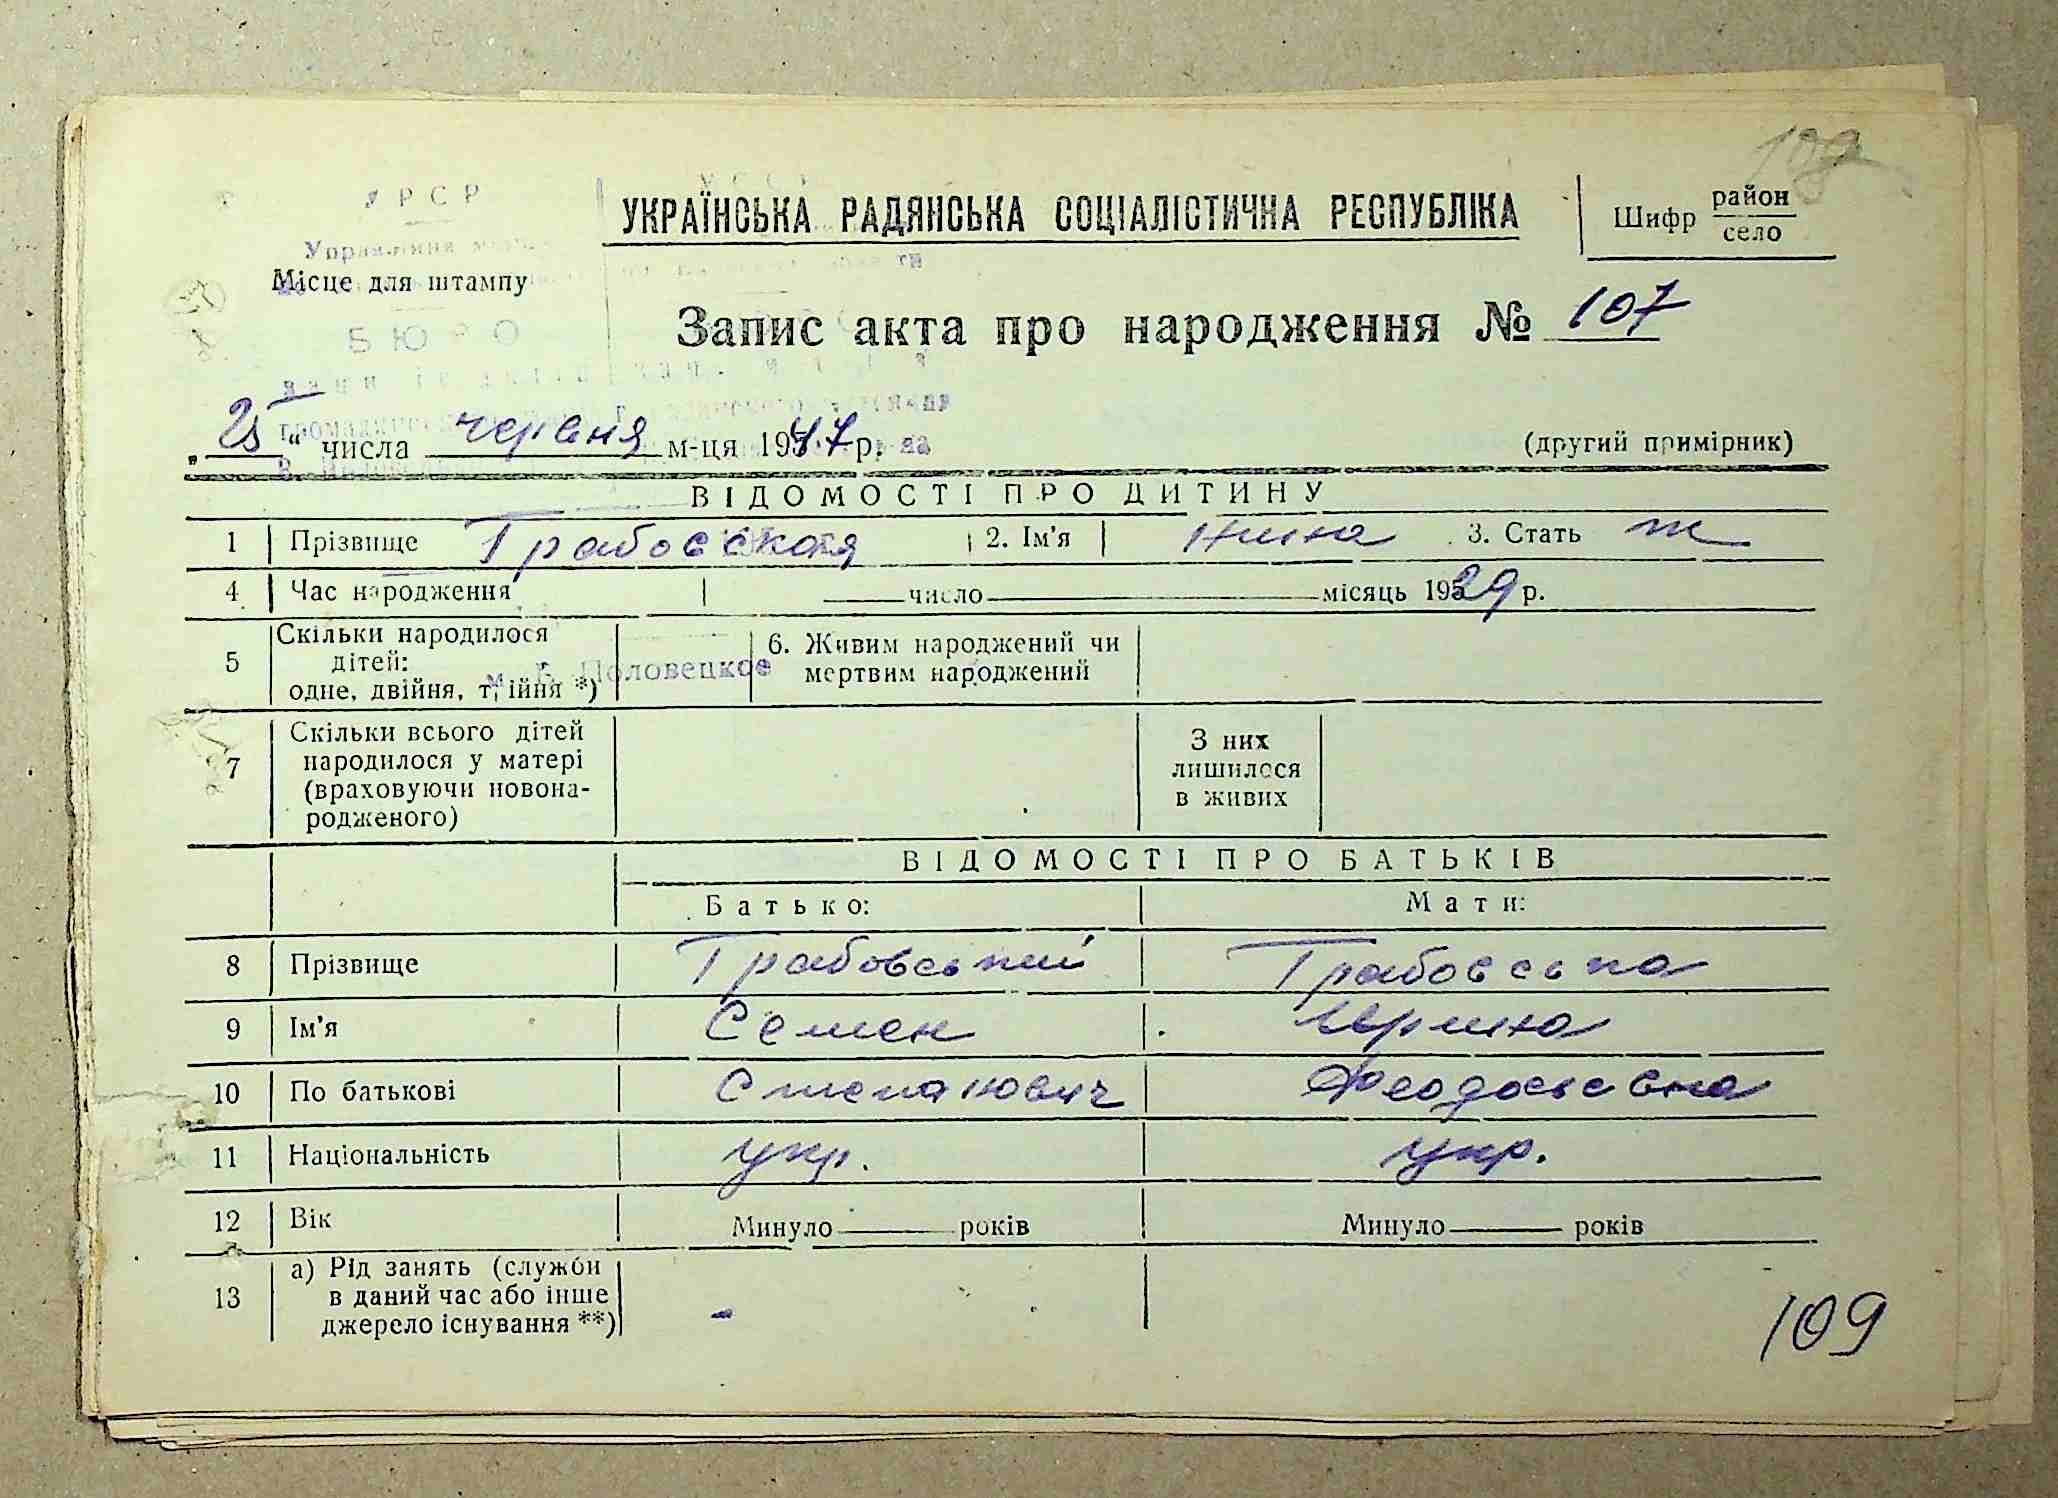 УРСР
УКРАЇНСЬКА РАДЯНСЬКА СОЦІАЛІСТИЧНА РЕСПУБЛІКА
Шифр район
село
Управління
Місце для штампу
Запис акта про народження № 107
БЮРО
„25“ числа червня м-ця 1947 р.
(другий примірник)
ВІДОМОСТІ ПРО ДИТИНУ
1 Прізвище Грабовская 2. Ім'я Нина 3. Стать ж
4 Час народження число місяць 1929 р.
5 Скільки народилося дітей: одне, двійня, трійня *) 6. Живим народжений чи мертвим народжений
Половецкое
7 Скільки всього дітей народилося у матері (враховуючи новонародженого) З них лишилося в живих
ВІДОМОСТІ ПРО БАТЬКІВ
Батько: Мати:
8 Прізвище Грабовський Грабовська
9 Ім'я Семен Ярина
10 По батькові Степанович Феодосьевна
11 Національність укр. укр.
12 Вік Минуло років Минуло років
13 а) Рід занять (служби в даний час або інше джерело існування **) -
109